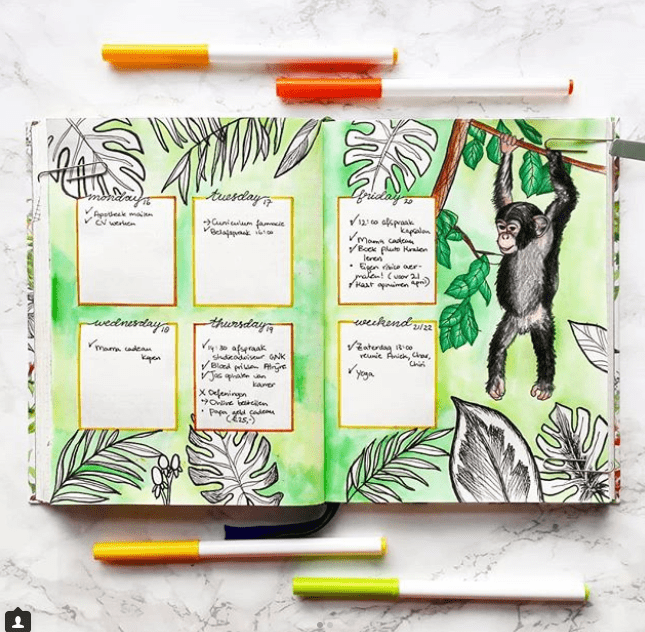 monday 16
✓ Apotheek mailen
✓ CV werken
tuesday 17
→ Curriculum
✓ Belafspraak 16:00
wednesday 18
✓ Mama cadeau
kopen
thursday 19
✓ afspraak
studieadviseur GNK
✓ Bloed prikken
✓ Jas ophalen van
kamer
X Oefeningen
→ Online bestellen
• Papa geld cadeau
(€25,-)
friday 20
✓ 12:00 afspraak
kapsalon
✓ Mama cadeau
✓ Boek Pluto Kraken
leren
• Eigen risico over-
maken! (voor 21
✓ Kast opruimen april)
weekend 21/22
✓ Zaterdag 18:00
reunie
✓ Yoga